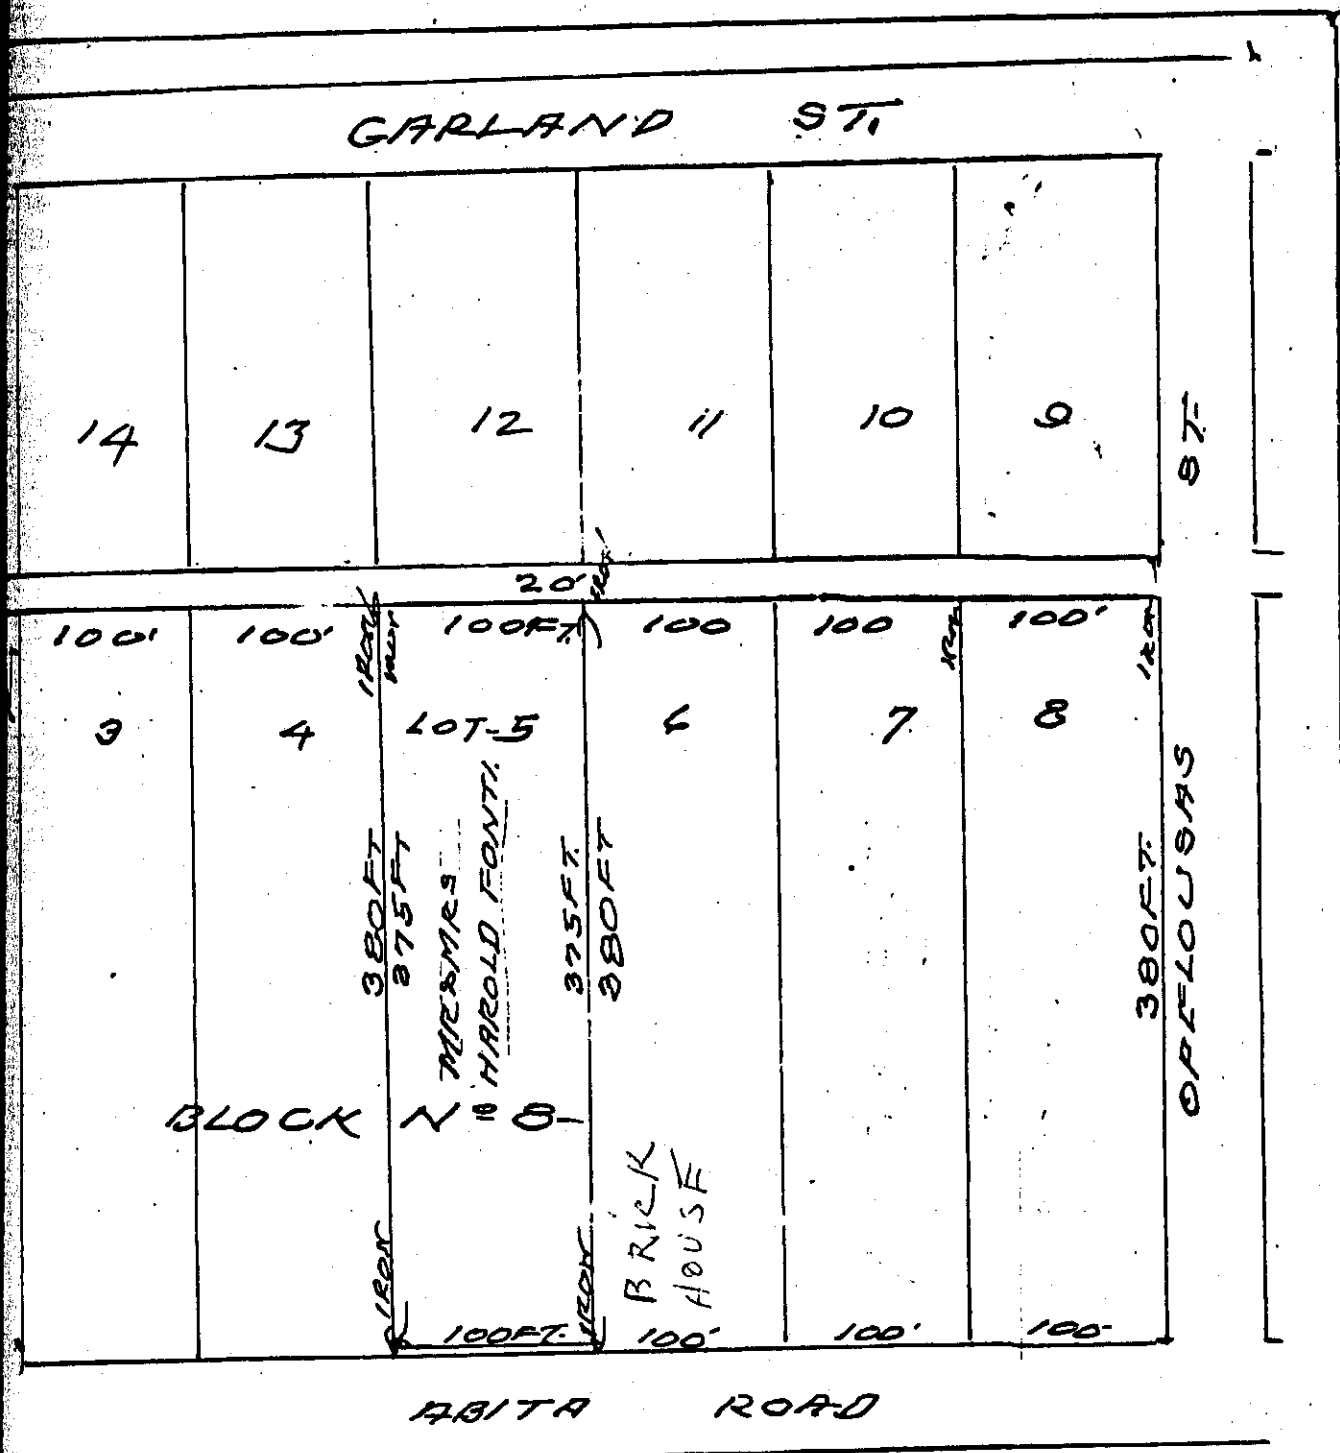 GARLAND ST.
14 13 12 11 10 9
ST.
20' IRON
100' 100' 100FT. 100 100 100'
IRON IRON IRON IRON
3 4 LOT-5 6 7 8
380FT
375FT
MR&MRS
HAROLD FONT
375FT.
380FT
380FT.
OPELOUSAS
BLOCK Nº 8-
BRICK
HOUSE
IRON IRON
100FT. 100' 100' 100-
ABITA ROAD